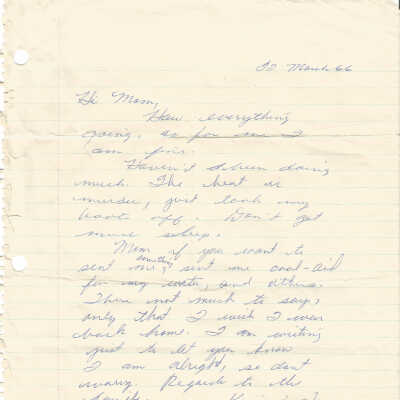 22 March 66
Hi Mom,
How everything
going, as for me I
am fine.
Haven't been doing
much. The heat is
murder, just took my
boots off. Don't get
much sleep.
Mom if you want to
sent me, something sent me cool-aid
for my water, and others.
There not much to say,
only that I wish I was
back home. I am writing
just to let you know
I am alright, so dont
worry. Regards to the